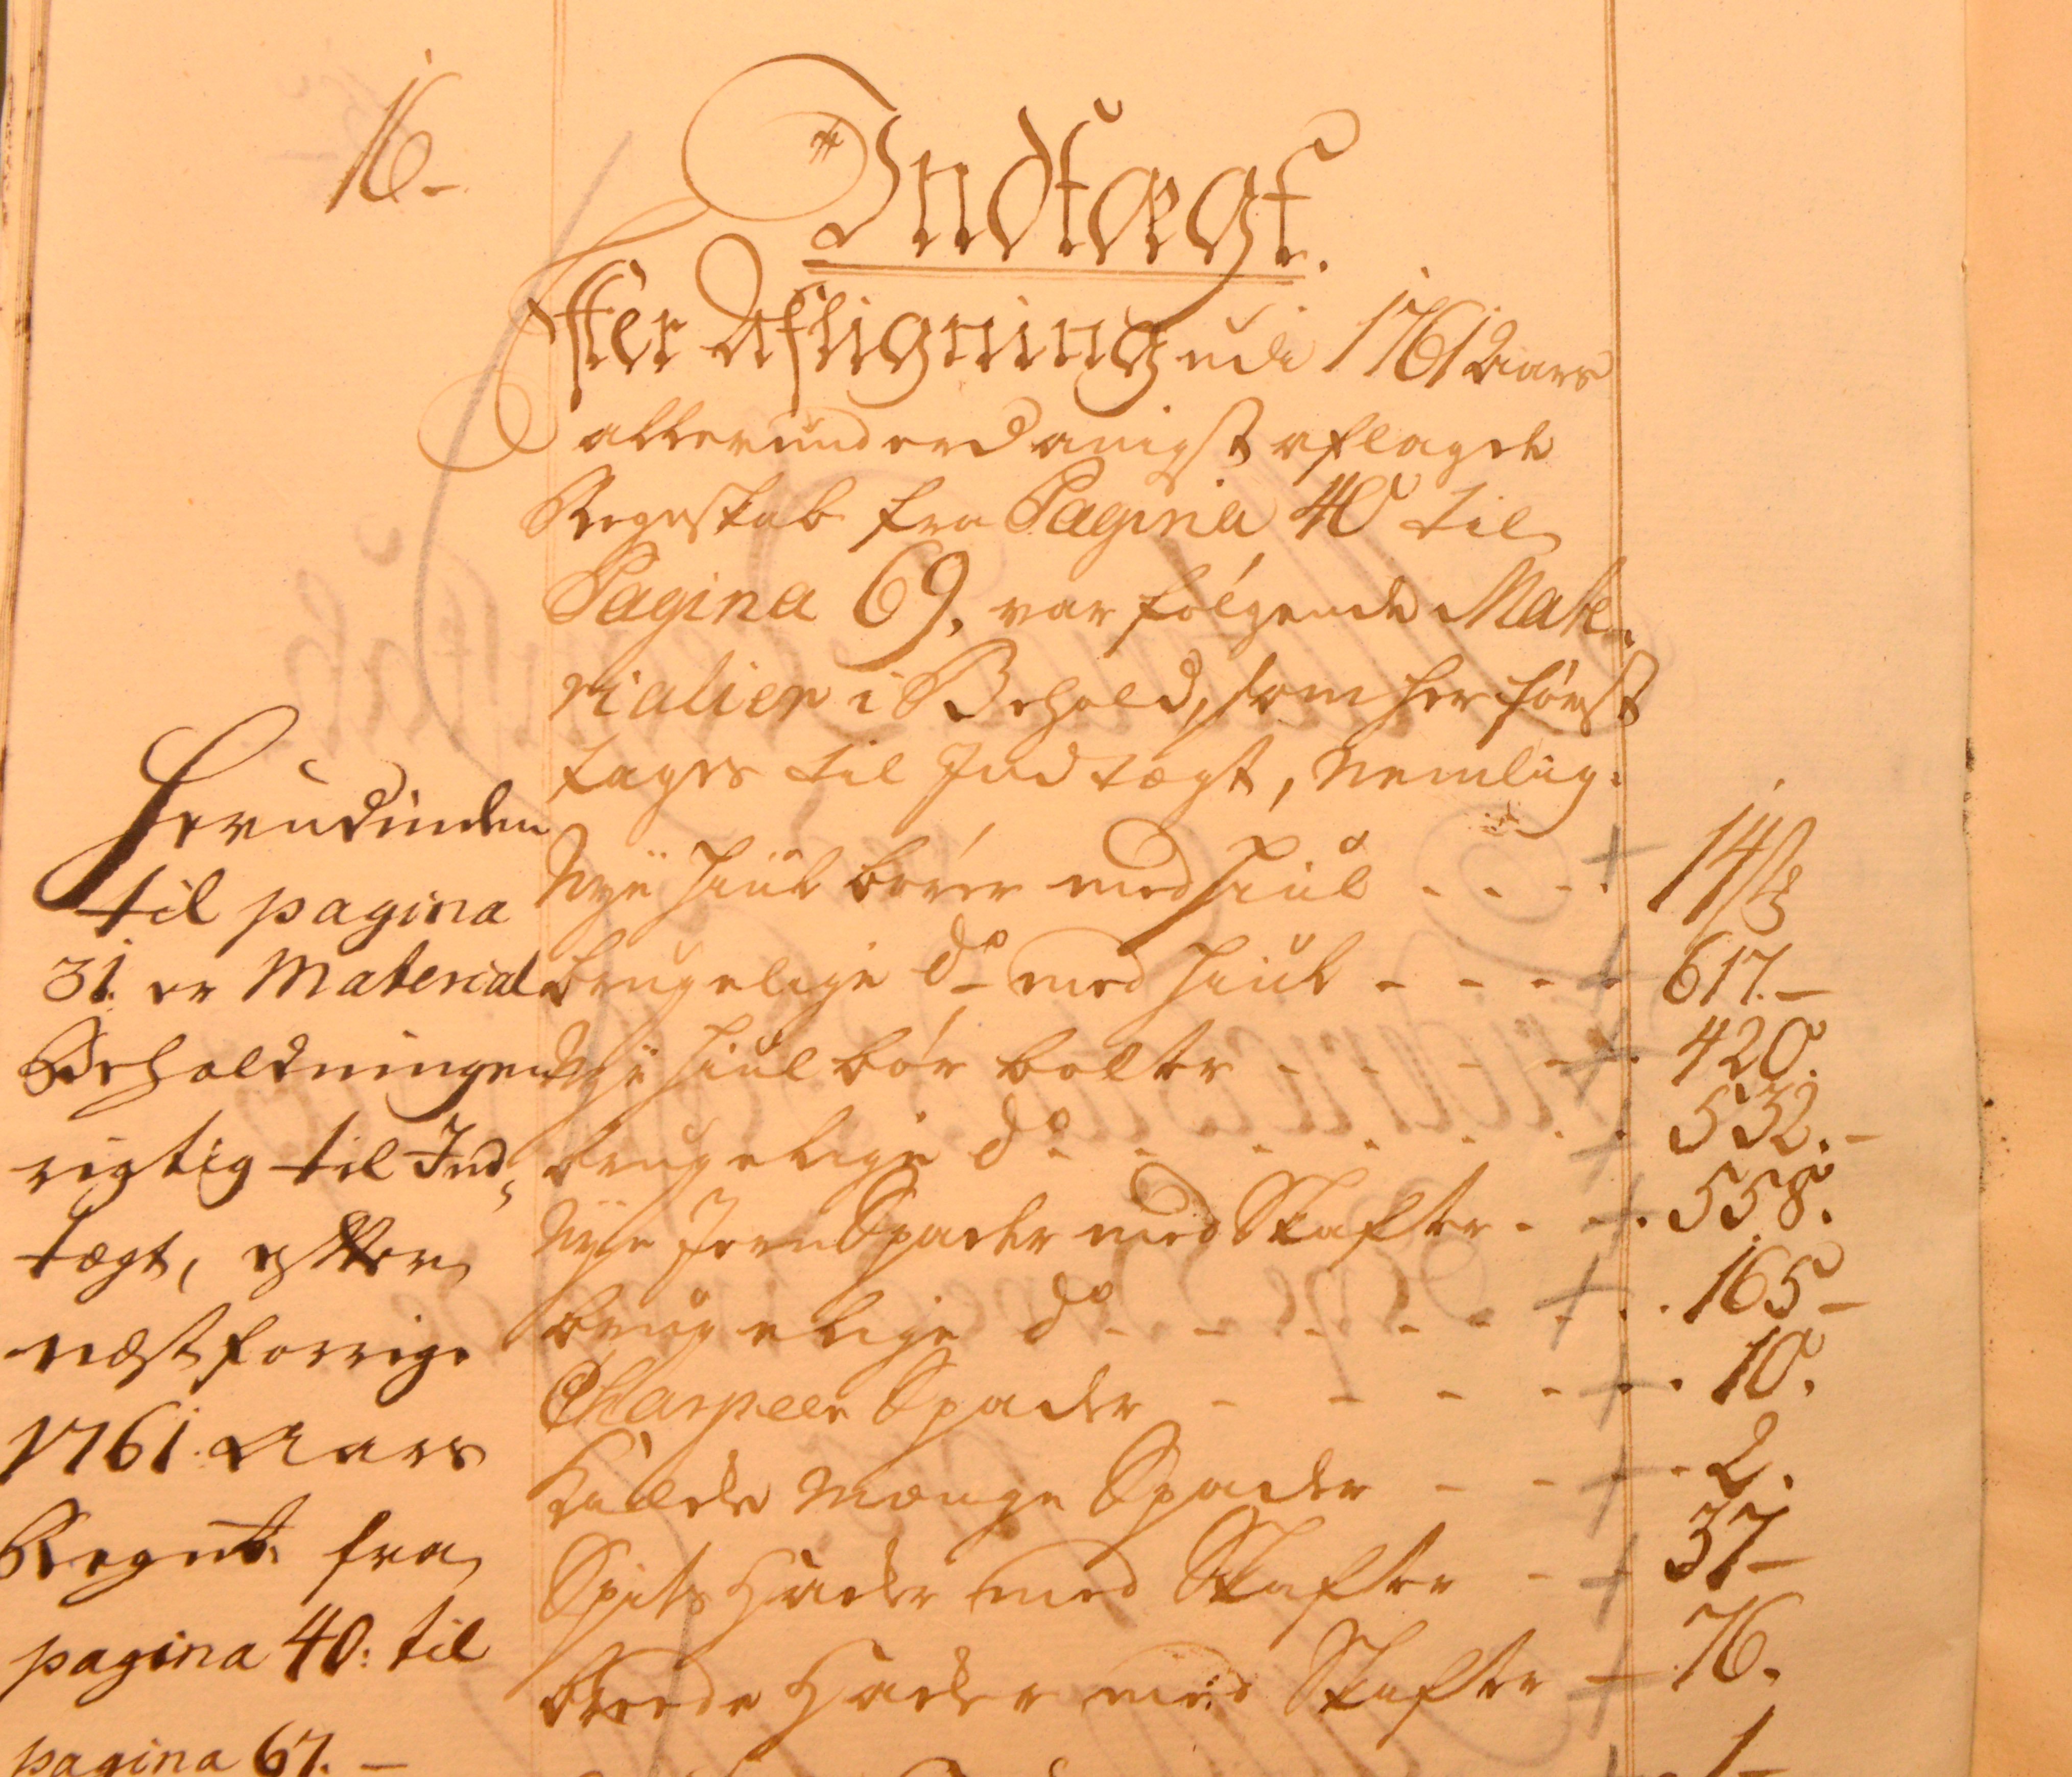 16-
Indtægt.
Efter Afligning udi 1761 Aars
allerunderdanigst aflagde
Regnskab fra Pagina 40 til
Pagina 69. var følgende Mate-
rialier i Behold, som her først
tages til Indtægt, Nemlig.
Nye Hiul bører med Hiul - - - - 14
brugelige do med Hiul - - - - 617.-
Nye Hiul bør bolter - - - - 420.
brugelige do - - - - - - 532.-
Nye Jern Spader med Skafter - - . 558.
brugelige do - - - - - - . . 165-
Spader - - - - - . . 10.
Spader - - - . . 2.
Spits Hacker med Skafter - - 37-
breede Hacker med Skafter - 76.
1-
Herudinden
til pagina
31. er Material
Beholdningen
rigtig til Ind,
tægt, efter
næstforrige
1761. Aars
Regnsk. fra
pagina 40: til
pagina 67. -